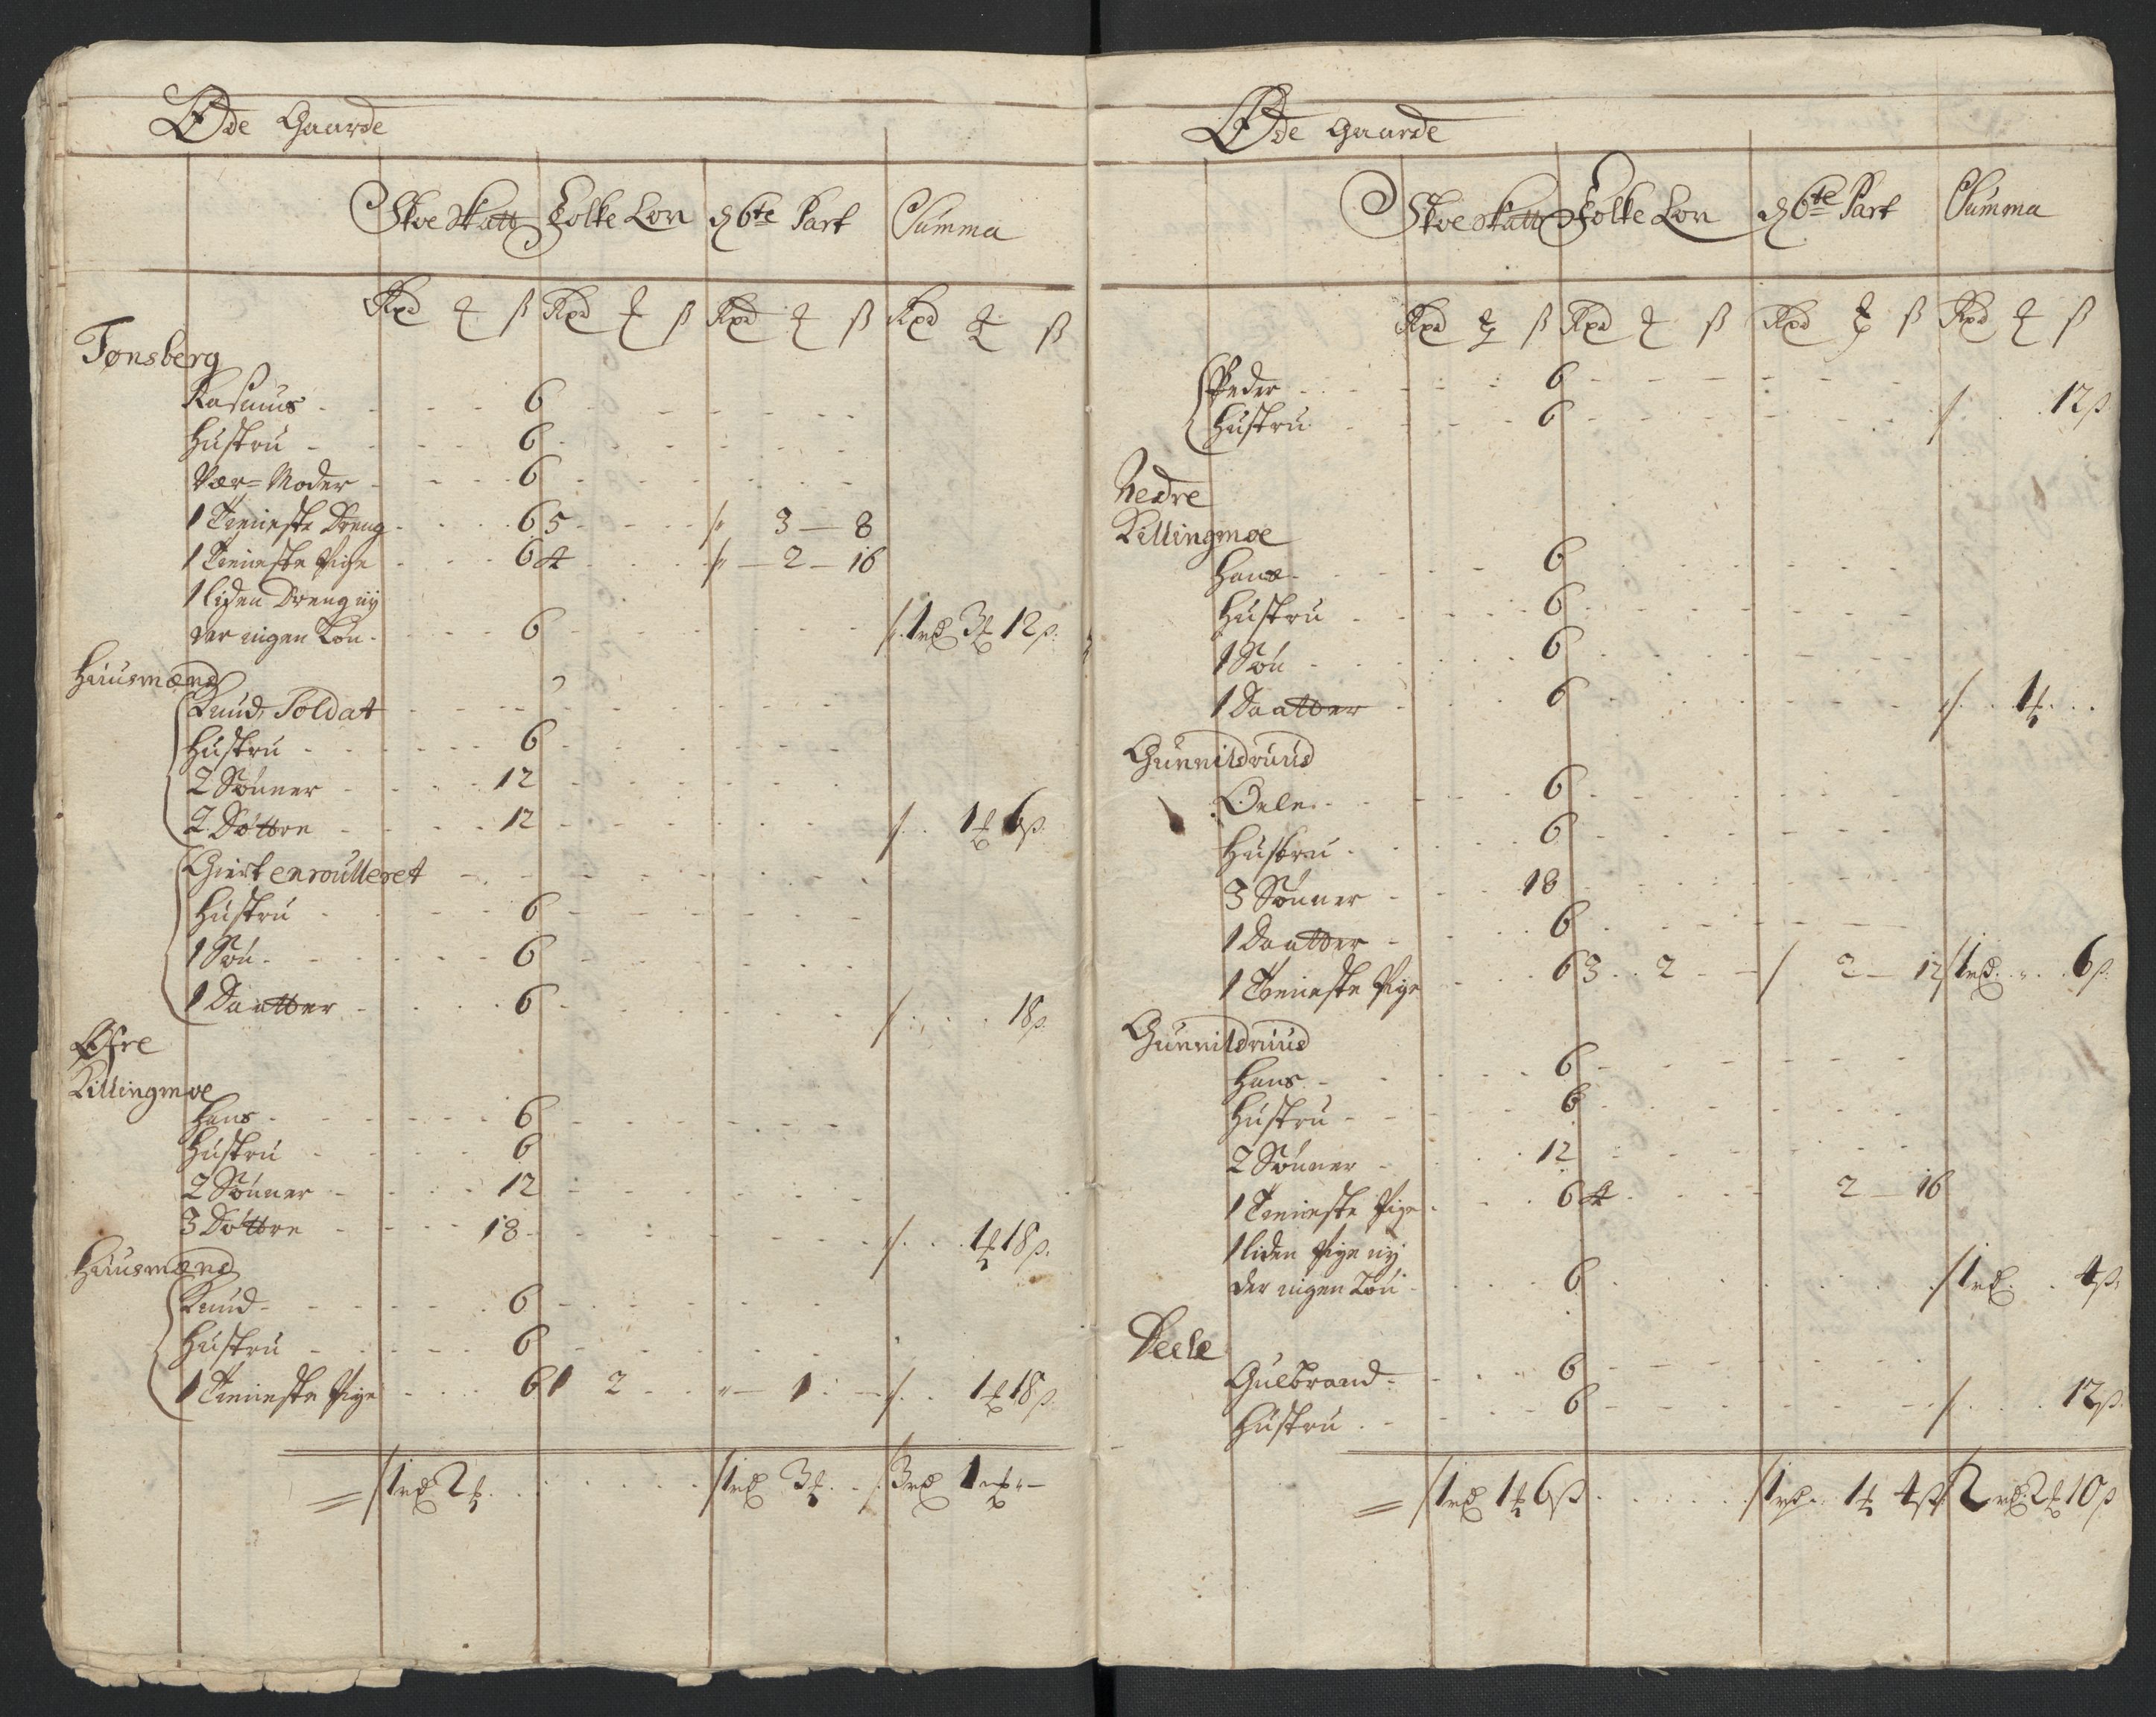 Øde Gaarde
Skoe Skatt Folke Løn d 6te Part Summa
Rxd ß Rxd ß Rxd ß Rxd ß
Tønsberg
Rasmus 6
Hustru 6
Vær=Moder 6
1 Tieneste Dreng 6 5 3 – 8
1 Tieneste Pige 6 4 2 – 16
1 liden Dreng nÿ
der ingen Løn 6 1 rd 3 12 ß
Huusmænd
Knud, Soldat
Hustru 6
2 Sønner 12
2 Døttre 12 1 6 ß
Giert enroulleret
Hustru 6
1 Søn 6
1 Daatter 6 18 ß
Øfre
Killingmoe
Hans 6
Hustru 6
2 Sønner 12
3 Døttre 18 1 18 ß
Huusmænd
Knud 6
Hustru 6
1 Tieneste Pige 6 1 2 1 1 18 ß
1 rd 2 1 rd 3 3 rd 1
Øde Gaarde
Skoe Skatt Folke Løn d 6te Part Summa
Rxd ß Rxd ß Rxd ß Rxd ß
Peder 6
Hustru 6 12 ß
Nedre
Killingmoe
Hans 6
Hustru 6
1 Søn 6
1 Daatter 6 1
Gunnildruud
Oele 6
Hustru 6
3 Sønner 18
1 Daatter 6
1 Tieneste Pige 6 3 2 2 – 12 1 rd 6 ß
Gunnildruud
Hans 6
Hustru 6
2 Sønner 12
1 Tieneste Pige 6 4 2 – 16
1 liden Pige nÿ
der ingen Løn 6 1 rd 4 ß
Gulbrand 6
Hustru 6 12 ß
1 rd 1 6 ß 1 rd 1 4 ß 2 rd 2 10 ß